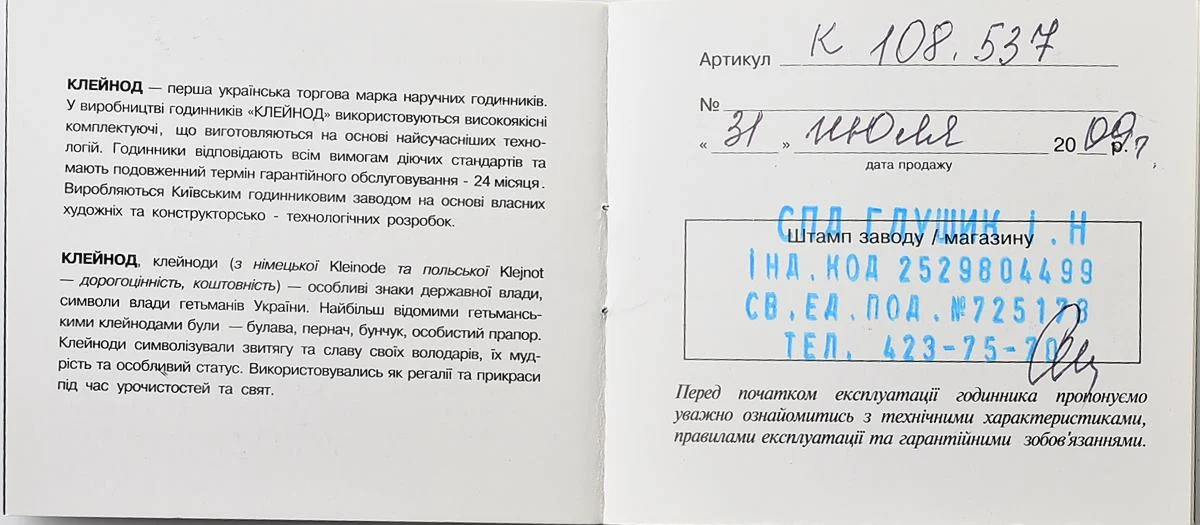 КЛЕЙНОД — перша українська торгова марка наручних годинників.
У виробництві годинників «КЛЕЙНОД» використовуються високоякісні
комплектуючі, що виготовляються на основі найсучасніших техно-
логій. Годинники відповідають всім вимогам діючих стандартів та
мають подовженний термін гарантійного обслуговування - 24 місяця.
Виробляються Київським годинниковим заводом на основі власних
художніх та конструкторсько - технологічних розробок.
КЛЕЙНОД, клейноди (з німецької Kleinode та польської Klejnot
— дорогоцінність, коштовність) — особливі знаки державної влади,
символи влади гетьманів України. Найбільш відомими гетьмансь-
кими клейнодами були — булава, пернач, бунчук, особистий прапор.
Клейноди символізували звитягу та славу своїх володарів, їх муд-
рість та особливий статус. Використовувались як регалії та прикраси
під час урочистостей та свят.
Артикул К 108.537
№
« 31 » июля 2009 р. г.
дата продажу
СПД ГЛУЩИК І.Н
Штамп заводу / магазину
ІНД.КОД 2529804499
СВ.ЕД.ПОД.№725178
ТЕЛ. 423-75-70
Перед початком експлуатації годинника пропонуємо
уважно ознайомитись з технічними характеристиками,
правилами експлуатації та гарантійними зобов'язаннями.